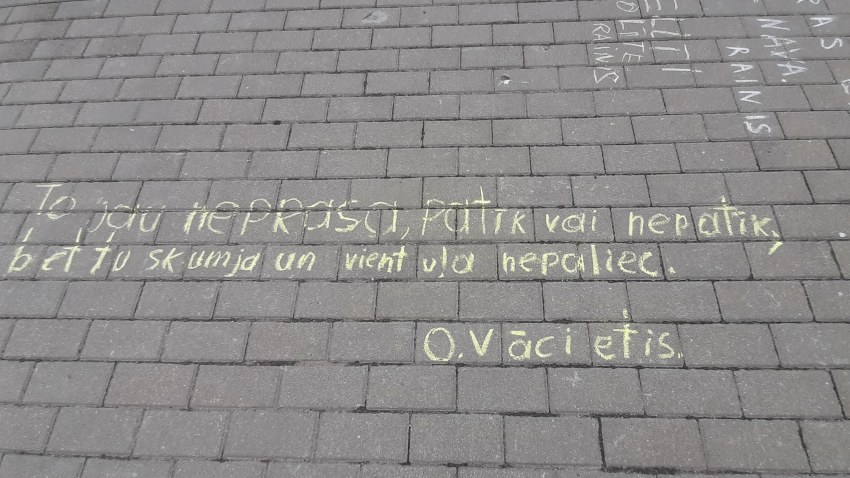 To jau neprasa, patīk vai nepatīk,
bet tu skumja un vientuļa nepaliec.
O. Vācietis.
ELITI
RAINIS
NAVA.
RAINIS